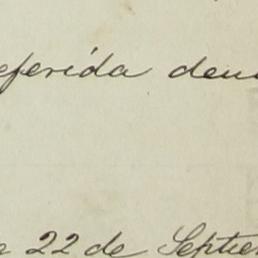 eferida deu
22 de Septie